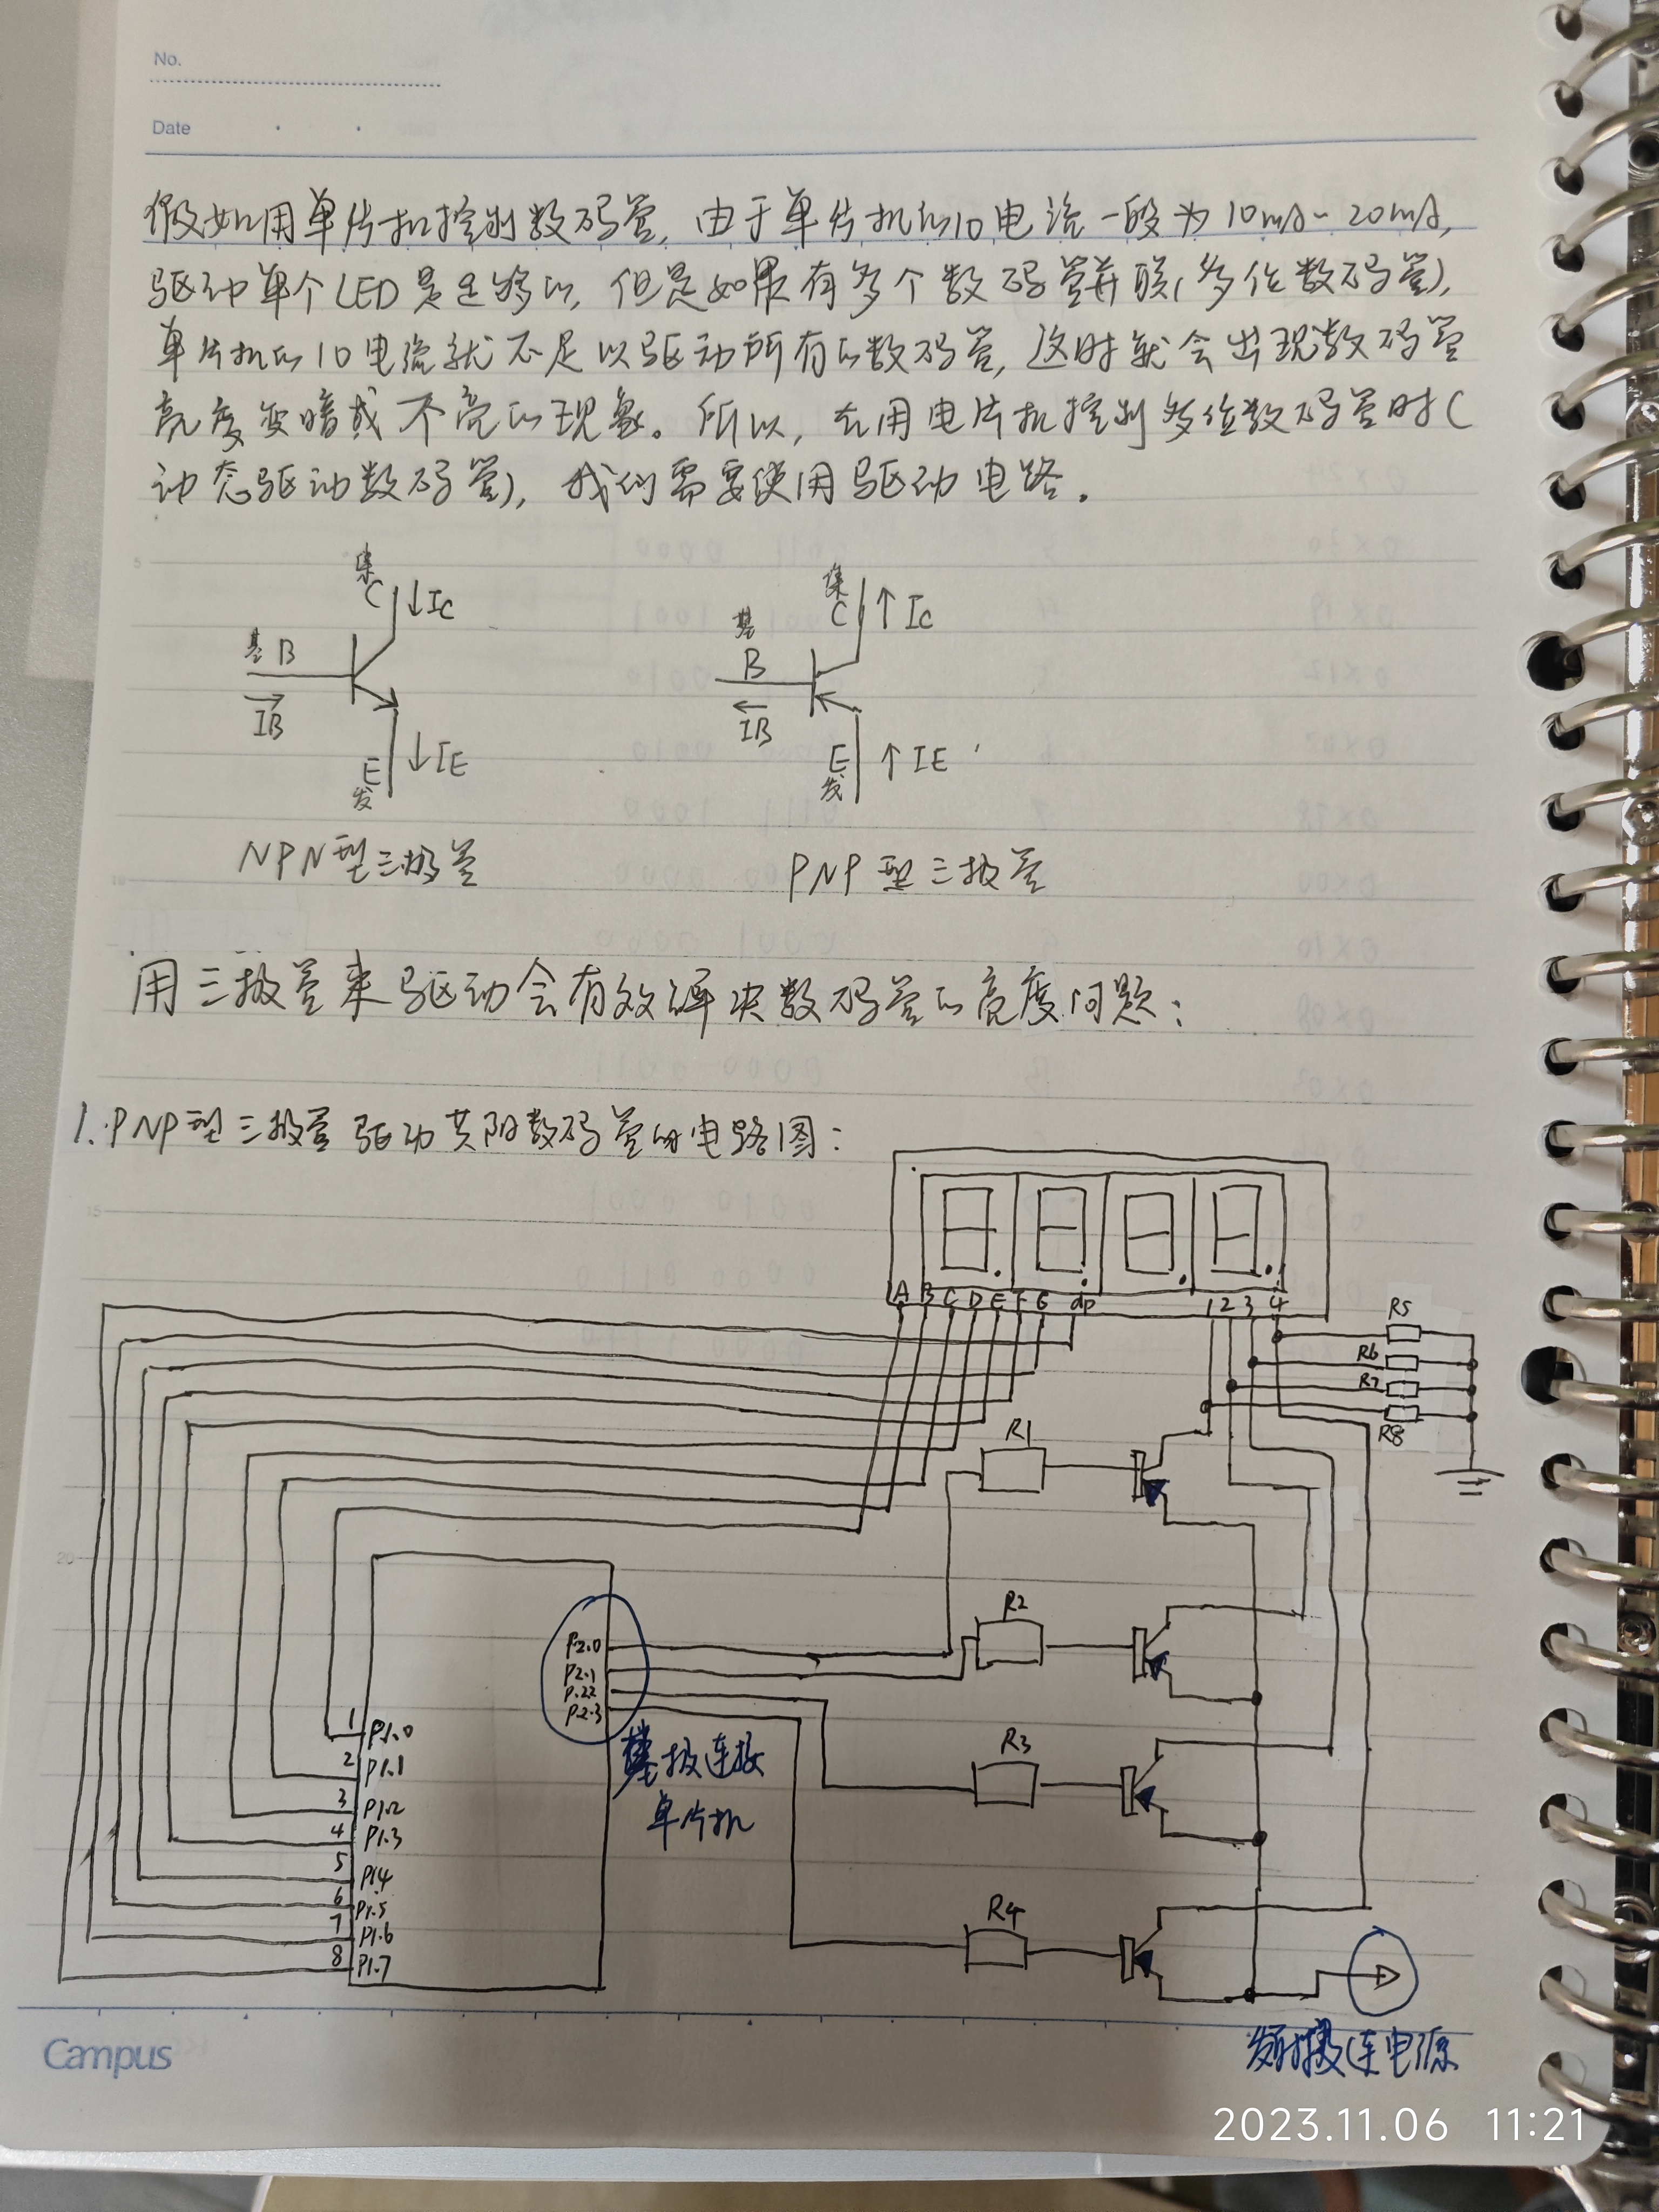 No.
Date
假如用单片机控制数码管,由于单片机的IO电流一般为10mA~20mA,
驱动单个LED是足够的,但是如果有多个数码管并联(多位数码管),
单片机的IO电流就不足以驱动所有的数码管,这时就会出现数码管
亮度变暗或不亮的现象。所以,在用电片机控制多位数码管时(
动态驱动数码管),我们需要使用驱动电路.
集
C ↓IC
基 B
IB
E ↓IE
发
NPN型三极管
集
C ↑IC
基
B
IB
E ↑IE
发
PNP型三极管
用三极管来驱动会有效解决数码管的亮度问题:
1.PNP型三极管驱动共阳数码管的电路图:
A B C D E F G dp 1 2 3 4
R5
R6
R7
R8
R1
R2
R3
R4
P2.0
P2.1
P.22
P2.3
基极连接
单片机
1 P1.0
2 P1.1
3 P1.2
4 P1.3
5 P1.4
6 P1.5
7 P1.6
8 P1.7
发射极连电源
5
10
15
20
Campus
2023.11.06 11:21